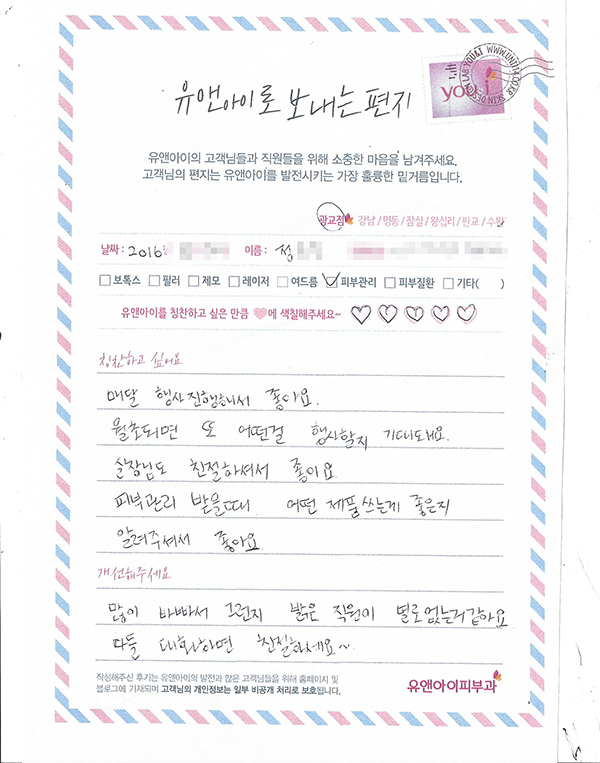 유앤아이로 보내는 편지
YOU&I WWW.UNI114.CO.KR SKIN DESIGN LAB
you i
유앤아이의 고객님들과 직원들을 위해 소중한 마음을 남겨주세요.
고객님의 편지는 유앤아이를 발전시키는 가장 훌륭한 밑거름입니다.
광교점 강남 / 명동 / 잠실 / 왕십리 / 판교 / 수원
날짜 : 2016년 이름 : 정
보톡스 필러 제모 레이저 여드름 피부관리 피부질환 기타( )
유앤아이를 칭찬하고 싶은 만큼 에 색칠해주세요~
칭찬하고 싶어요
매달 행사진행해서 좋아요.
월초되면 또 어떤걸 행사할지 기대돼요.
실장님도 친절하셔서 좋아요
피부관리 받을때 어떤 제품쓰는게 좋은지
알려주셔서 좋아요
개선해주세요
많이 바빠서 그런지 밝은 직원이 별로없는거같아요
다들 대화하면 친절하세요~
작성해주신 후기는 유앤아이의 발전과 많은 고객님들을 위해 홈페이지 및
블로그에 기재되며 고객님의 개인정보는 일부 비공개 처리로 보호됩니다.
유앤아이피부과